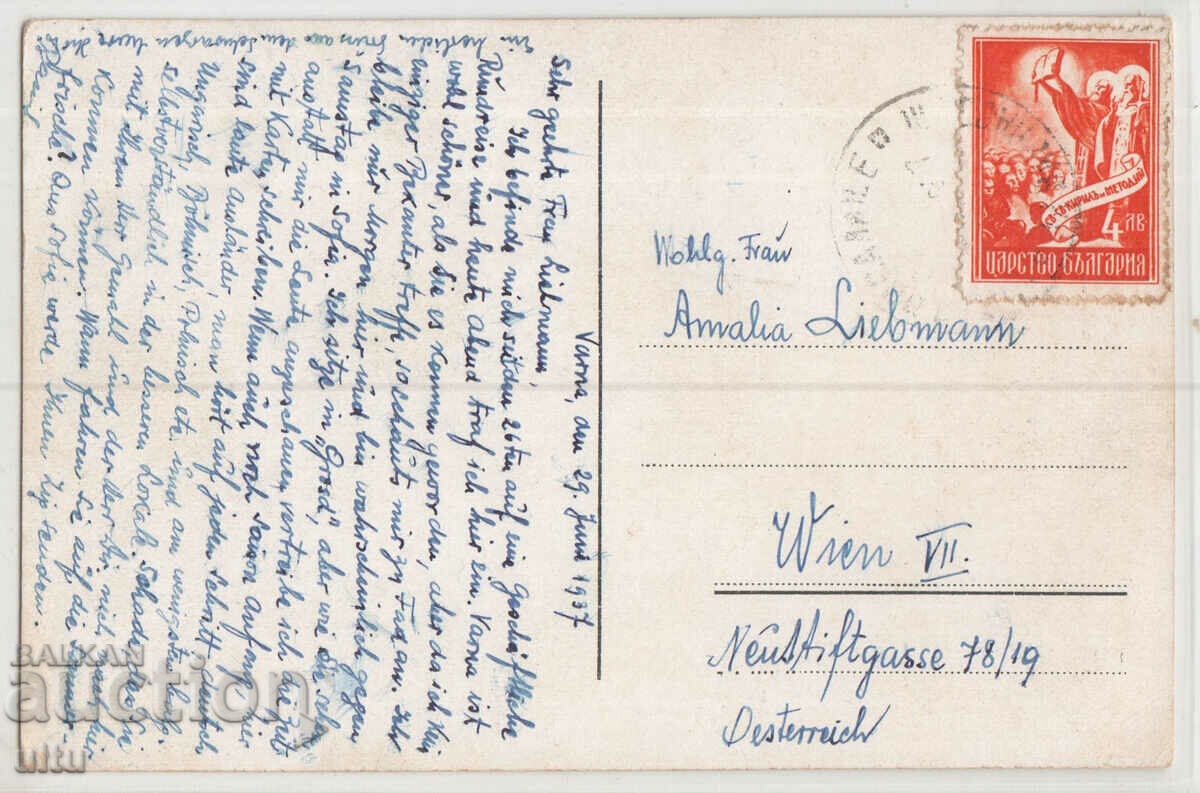 Varna, den 29. Juni 1937
Sehr geehrte Frau Liebmann,
Ich befinde mich seit den 26ten auf eine Geschäftliche
Rundreise und heute abend traf ich hier ein. Varna ist
wohl schöner als Sie es kennen geworden, aber da ich kein
einziger Bekannter treffe, so schauts mir zu fad an. Ich
bleibe nur Morgen hier und bin wahrscheinlich gegen
Samstag in Sofia. Ich sitze in „Grosd“, aber wie Sie seh.
anstatt mir die Leute anzuschauen, vertreibe ich die Zeit
mit Karten schreiben. Wenn auch noch Saison anfang, hier
sind lauter Ausländer, man hört auf jeden Schritt Deutsch
Ungarisch, Böhmisch, Polnisch etz. und am wenigsten bulg.
selbstverständlich in der besseren Lokale. Schade, dass Sie
mit Ihrem Her Gemahl und der nicht hierher
Kommen können. Wann fahren Sie auf die Sommer-
frische? Aus Sofia werde Ihnen Zig. senden.
Ein herzlichen Gruss aus dem schwarzen Meere
Wohlg. Frau
Amalia Liebmann
Wien VII.
Neustiftgasse 78/19
Oesterreich
СВ. СВ. КИРИЛЪ и МЕТОДИЙ
4 ЛВ
ЦАРСТВО БЪЛГАРИЯ
BALKAN
auction
ultu